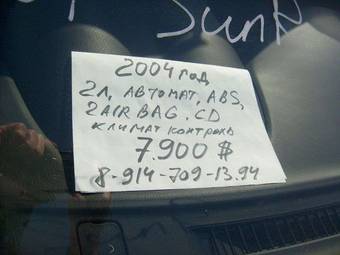 SunR
2004 год
2л, АВТОМАТ, ABS,
2 AIR BAG, CD
климат контроль
7.900 $
8-914-709-13.94